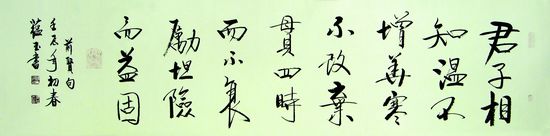 君子相
知温不
增華寒
不改棄
貫四時
而不衰
勵坦險
而益固
前賢句
壬辰年初春
蕴玉書